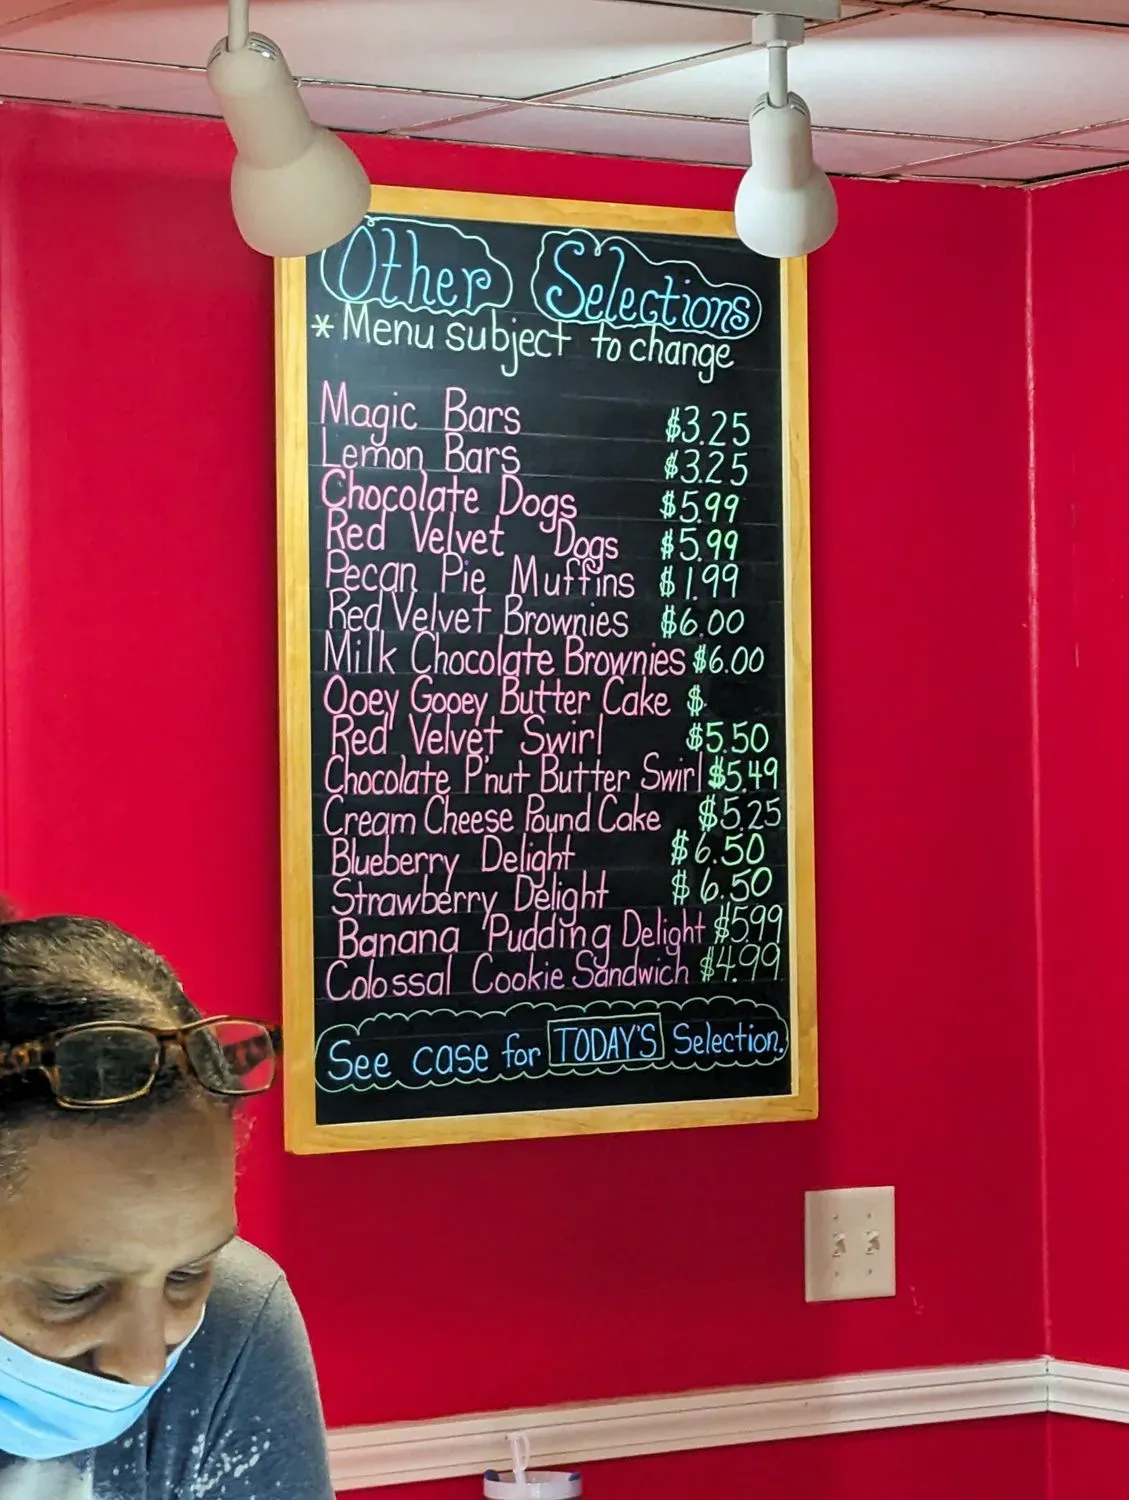 Other Selections
* Menu subject to change
Magic Bars $3.25
Lemon Bars $3.25
Chocolate Dogs $5.99
Red Velvet Dogs $5.99
Pecan Pie Muffins $1.99
Red Velvet Brownies $6.00
Milk Chocolate Brownies $6.00
Ooey Gooey Butter Cake $
Red Velvet Swirl $5.50
Chocolate P'nut Butter Swirl $5.49
Cream Cheese Pound Cake $5.25
Blueberry Delight $6.50
Strawberry Delight $6.50
Banana Pudding Delight $5.99
Colossal Cookie Sandwich $4.99
See case for TODAY'S Selection.